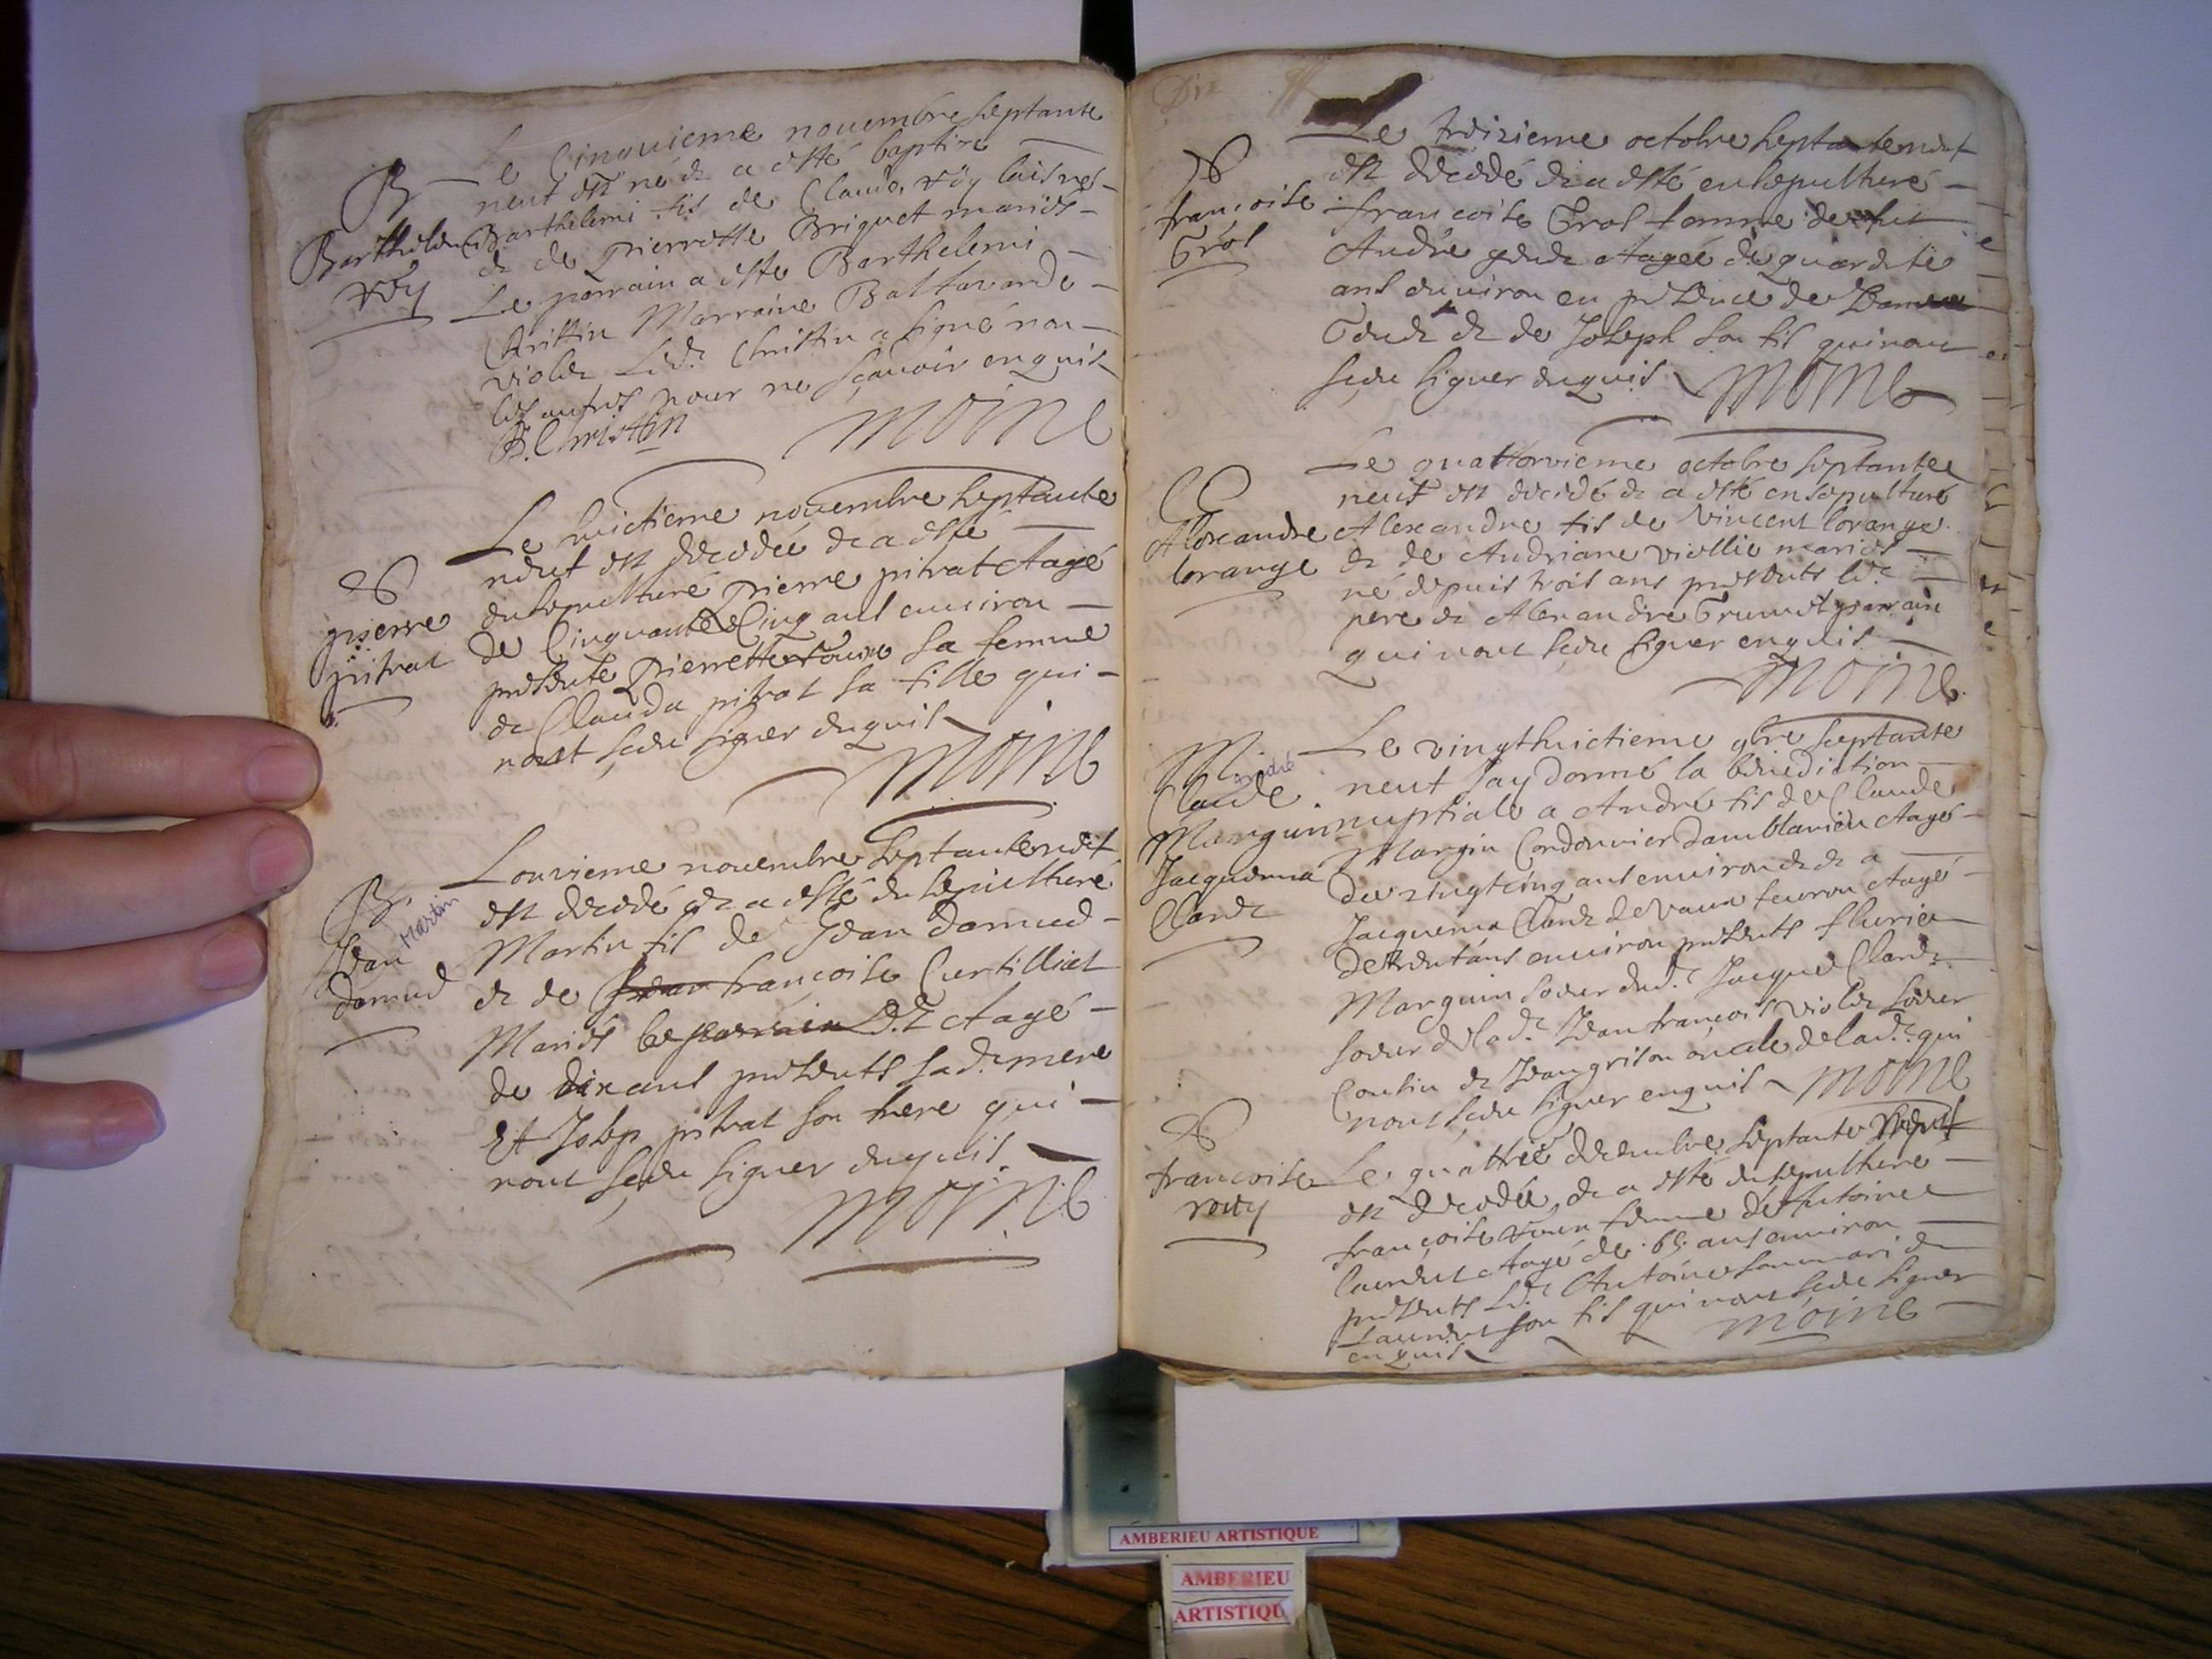 B
Barthelemi
röy
Le Cinquieme nouembre septante
neuf est né & a esté baptizé
Barthelemi fils de Claude röy laisné
& de pierrette Briquet mariés
Le parrain a este Barthelemi
Christin Marraine Baltazarde
violet Led. Christin a signé non
les autres pour ne sçauoir enquis
B. Christin moine
pierre
pitrat
Le huictieme nouembre septante
neuf est decedée & a esté
ensepulturé pierre pitrat Aagé
de Cinquante Cinq ans enuiron
presente pierrette sa femme
& Clauda pitrat sa fille qui
nont sçeu signer enquis
moine
Jean Martin
damud
Lonzieme nouembre septante neuf
est decedé & a esté ensepulturé
Martin fils de Jean damud
& de francoise Curtilliat
Mariés Aagé
de dix ans presents sad. mere
Et Josep pitrat son frere qui
nont sçeu signer enquis
moine
Dix
francoise
Grol
Le troizieme octobre septante neuf
est decedé & a esté ensepulturé
francoise Grol femme de
André Aagée de quarante
ans enuiron en presence de
& de Joseph son fils qui nont
sçeu signer enquis moine
Alexandre
lorange
Le quattorzieme octobre septante
neuf est decedé & a esté ensepulturé
Alexandre fils de Vincent lorange
& de Andriane viollie mariés
né depuis trois ans presents led.
pere & Alexandre parrain
qui nont sçeu signer enquis
moine
M.
Claude andré
Marguin
Jacquema
Clard
Le vingthuictieme 9bre septante
neuf Jay donné la benediction
nuptiale a André fils de Claude
Margin Cordonnier dambianieu Aagé
de vingt cinq ans enuiron & a
Jacquema Clard de Vaux feuron Aagé
de trent ans enuiron presents flurie
Marguin soeur dud. Jacque Clard
soeur de lad. Jean francois violet soeur
Cousin & Jean grison oncle de lad. qui
nont sçeu signer enquis moine
francoise
roüy
Le quattrie decembre septante neuf
est decedée & a esté ensepulturé
françoise femme de Antoine
Laurent Aagé de 65 ans enuiron
presents Led. Antoine son mari &
Laurent son fils qui nont sçeu signer
enquis moine
AMBERIEU ARTISTIQUE
AMBERIEU
ARTISTIQU